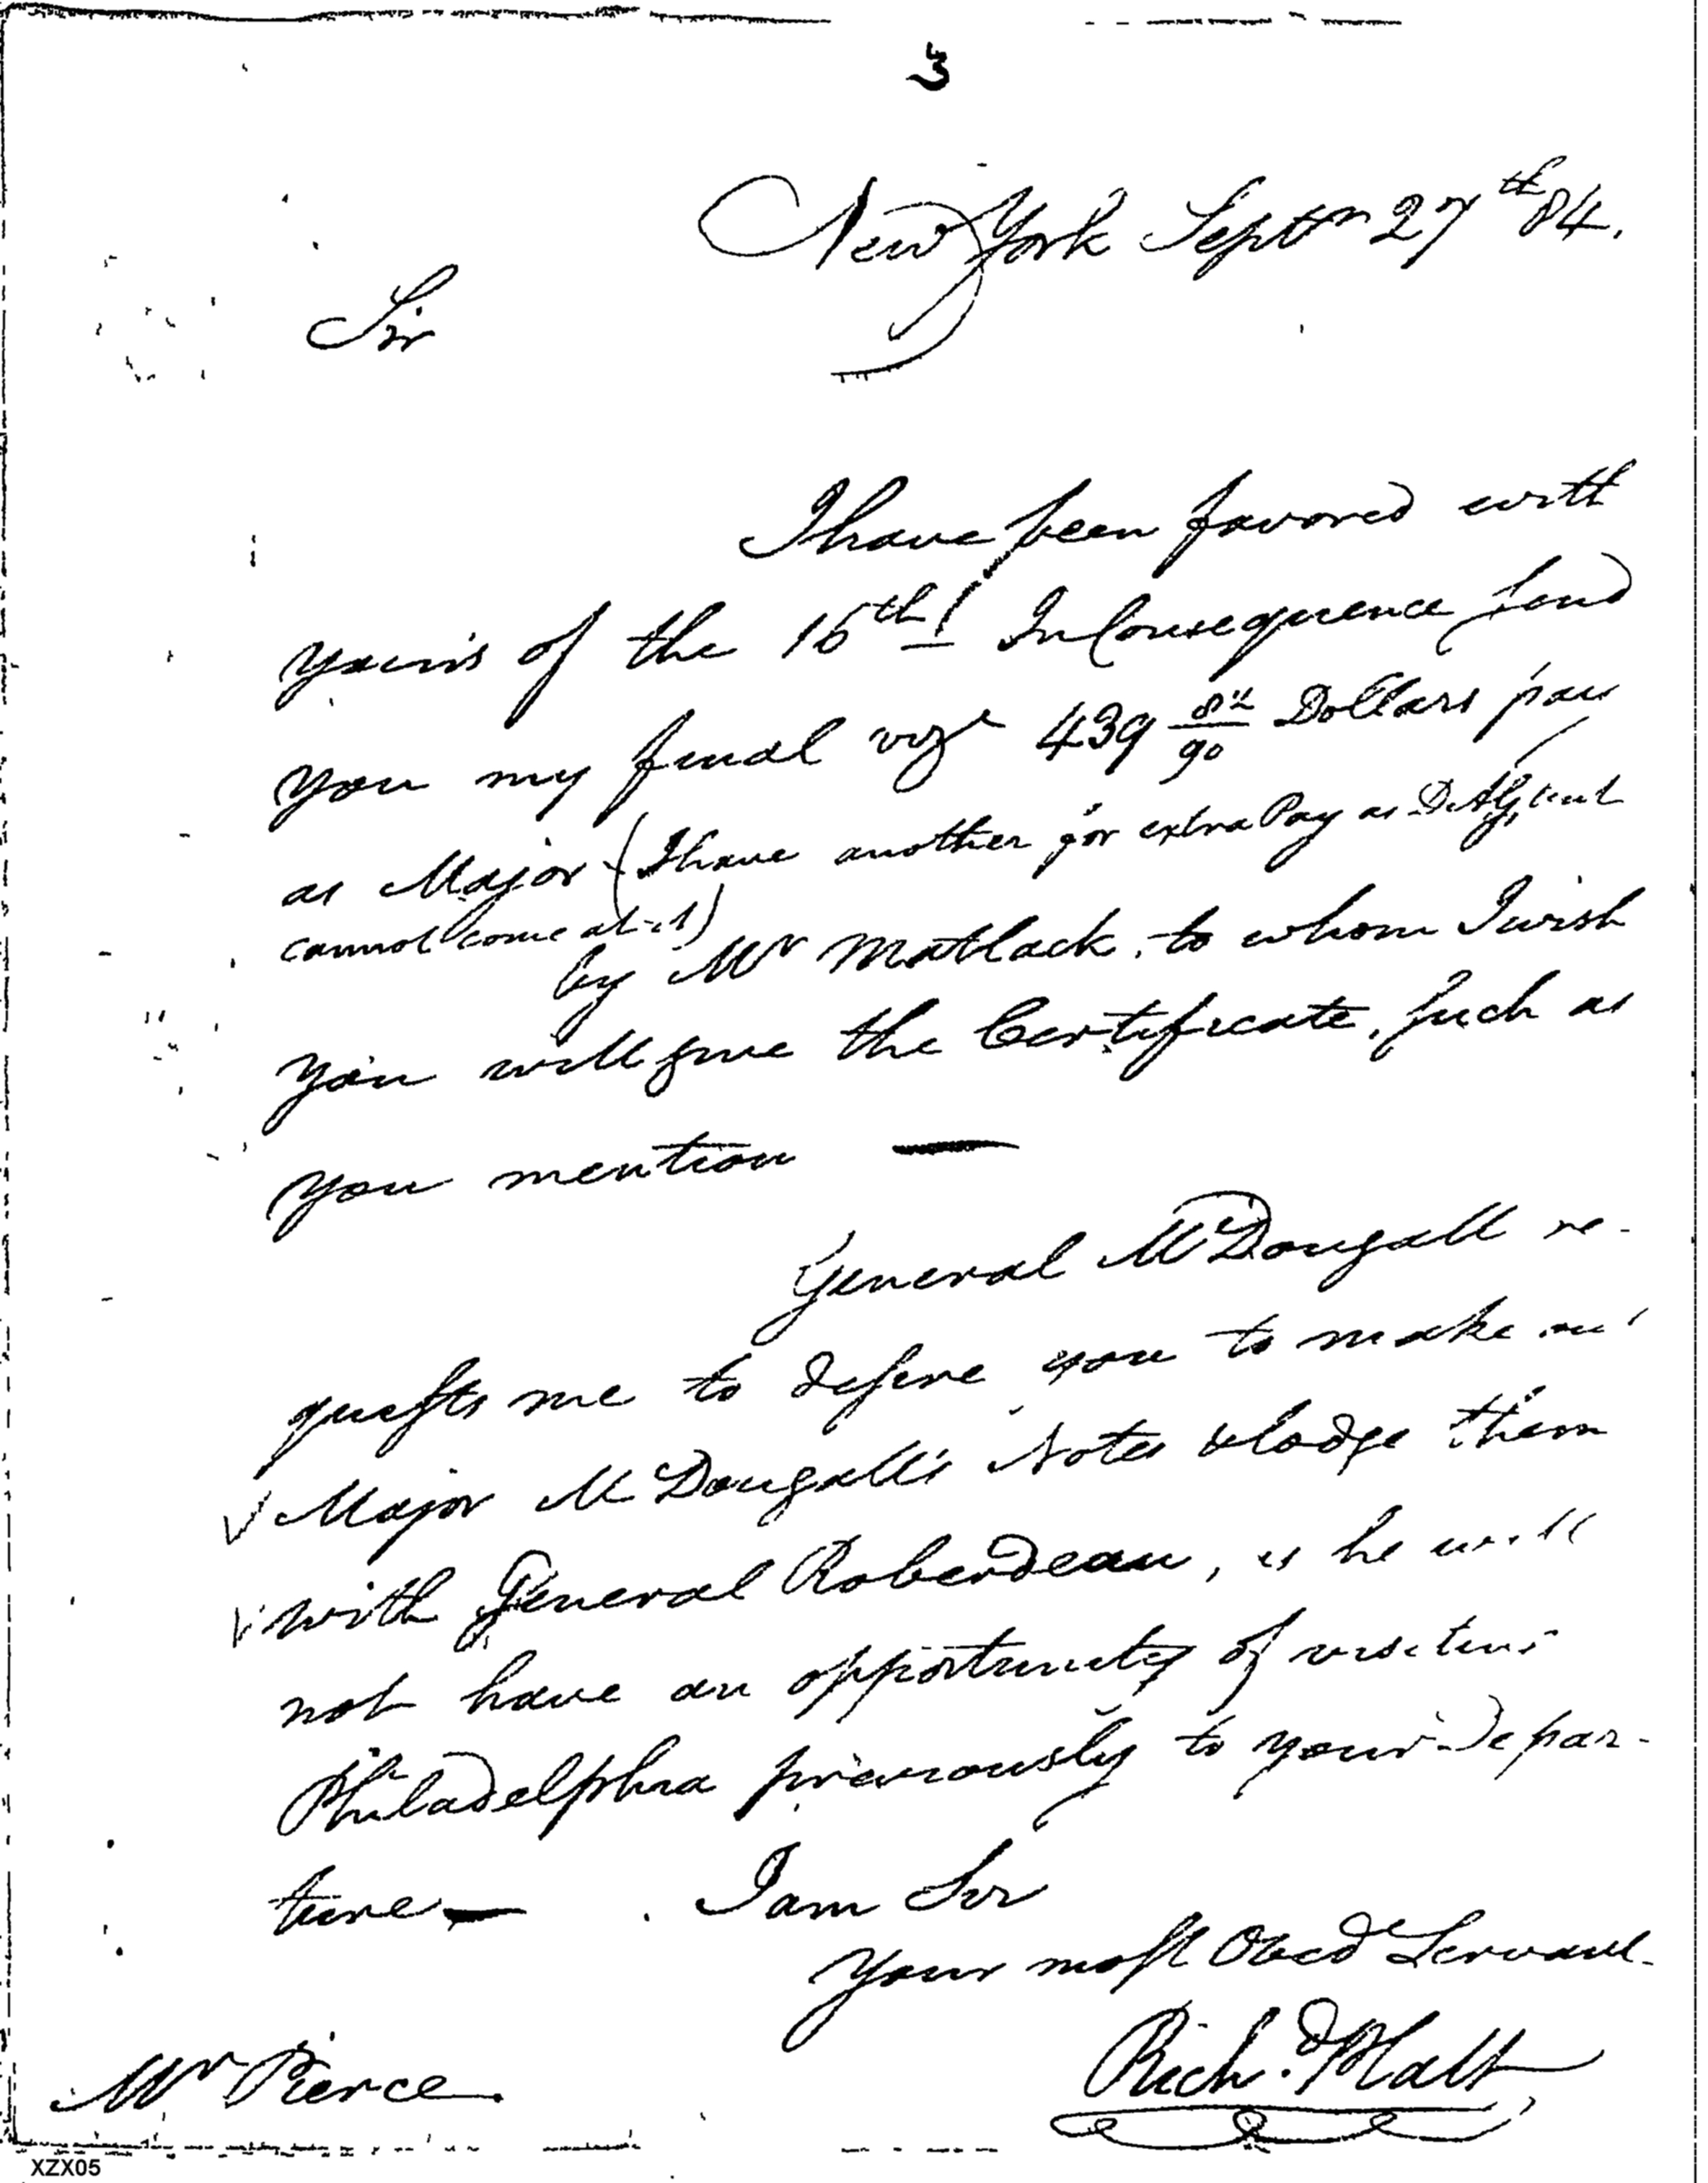 3
New York Septr 27th 84.
Sir
I have been favored with
yours of the 15th! In Consequence send
you my final vizt 439 82/90 Dollars pay
as Major (I have another for extra Pay as D. A G, but
cannot come at it)
by Mr Matlack, to whom I wish
you will give the Certificate, such as
you mention —
General McDougall re-
quests me to desire you to make out
Major McDougall's Notes & lodge them
with General Roberdeau, as he will
not have an opportunity of visiting
Philadelphia previously to your depar-
ture — I am Sir
Your most Obedt Servant
Richd. Platt
Mr Pierce
XZX05